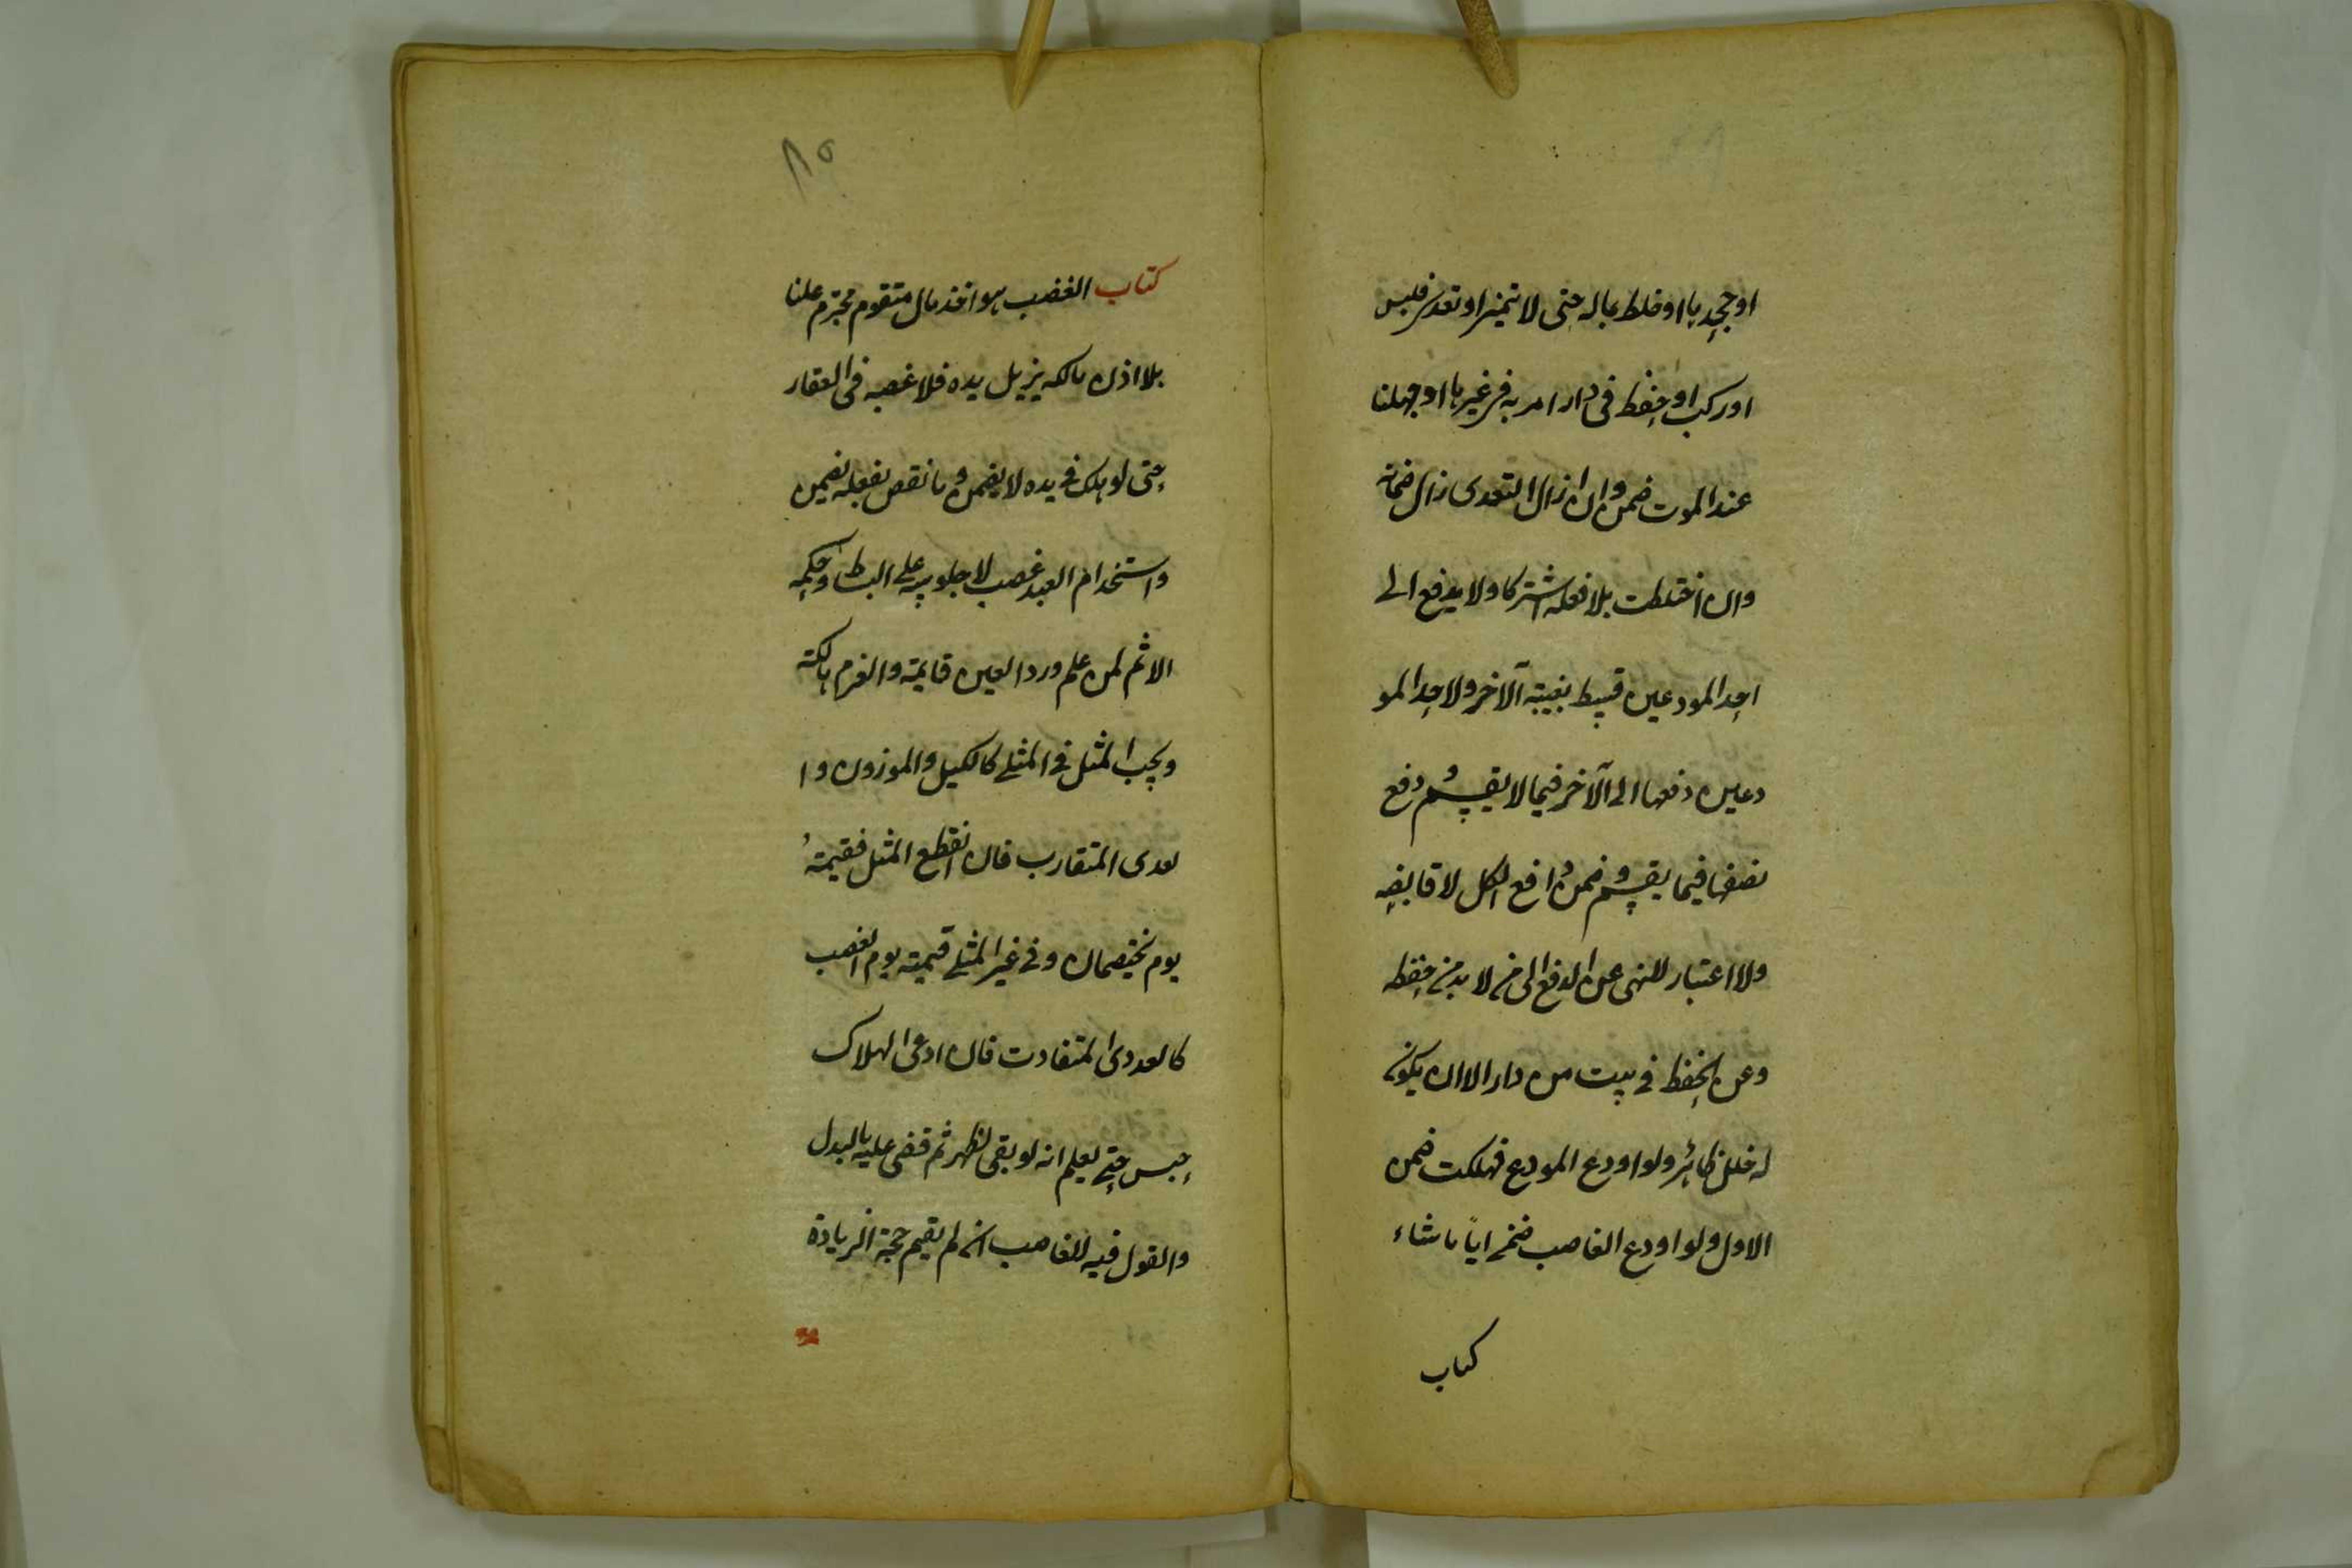 او جحدها او خلط بماله حتى لا تتميز او تعدى فلبس
او ركب او حفظ فى دار امر به فى غيرها او جهلنا
عند الموت ضمن وان زال التعدى زال ضمانه
وان اختلطت بلا فعله اشتركا ولا يدفع الى
احد المودعين قسط بغيبة الآخر ولاحد المو
دعين دفعها الى الآخر فيما لا يقسم ودفع
نصفها فيما يقسم وضمن دافع الكل لا قابضه
ولا اعتبار للنهى عن الدفع الى من لا بد من حفظه
وعن الحفظ فى بيت من دار الا ان يكون
له خلل ظاهر ولو اودع المودع فهلكت ضمن
الاول ولو اودع الغاصب ضمن ايا ما شاء
كتاب
٨٥
كتاب الغضب هو اخذ مال متقوم محترم علنا
بلا اذن مالكه يزيل يده فلا غصبه فى العقار
حتى لو هلك فى يده لا يضمن وما نقص بفعله يضمن
واستخدام العبد غصب لا جلوسه على البساط وحكمه
الاثم لمن علم ورد العين قايمة والغرم هالكة
ويجب المثل فى المثلى كالكيل والموزون وا
لعددى المتقارب فان انقطع المثل فقيمته
يوم يختصمان وفى غير المثلى قيمته يوم الغصب
كالعددى المتفاوت فان ادعى الهلاك
حبس حتى يعلم انه لو بقى لظهر ثم قضى عليه بالبدل
والقول فيه للغاصب ان لم يقيم حجة الزيادة